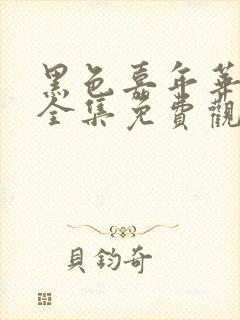 黑色嘉年華
全集免費觀
貝鈞奇